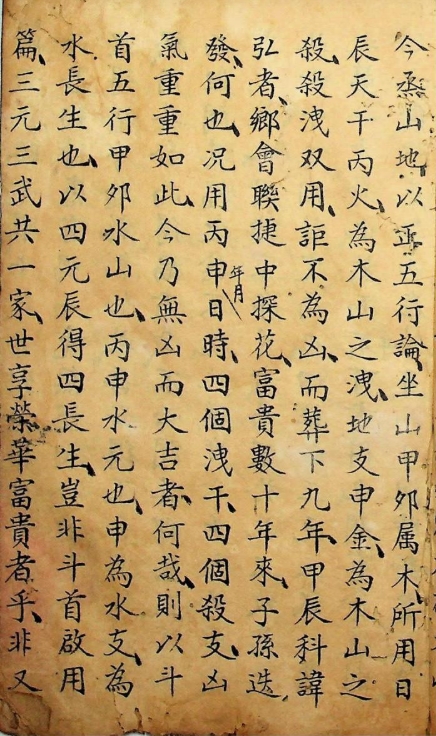 今烝山地以正五行論、坐山甲夘属木、所用日
辰天干丙火、為木山之洩、地支申金、為木山之
殺、殺洩双用、詎不為凶、而葬下九年、甲辰科諱
弘者、鄉會聯捷中探花、富貴數十年來、子孫迭
發、何也、况用丙申年月日時、四個洩干、四個殺支、凶
氣重重如此、今乃無凶而大吉者、何哉、則以斗
首五行甲夘水山也、丙申水元也、申為水支、為
水長生也、以四元辰得四長生、豈非斗首啟用
篇、三元三武共一家、世享榮華富貴者乎、非又